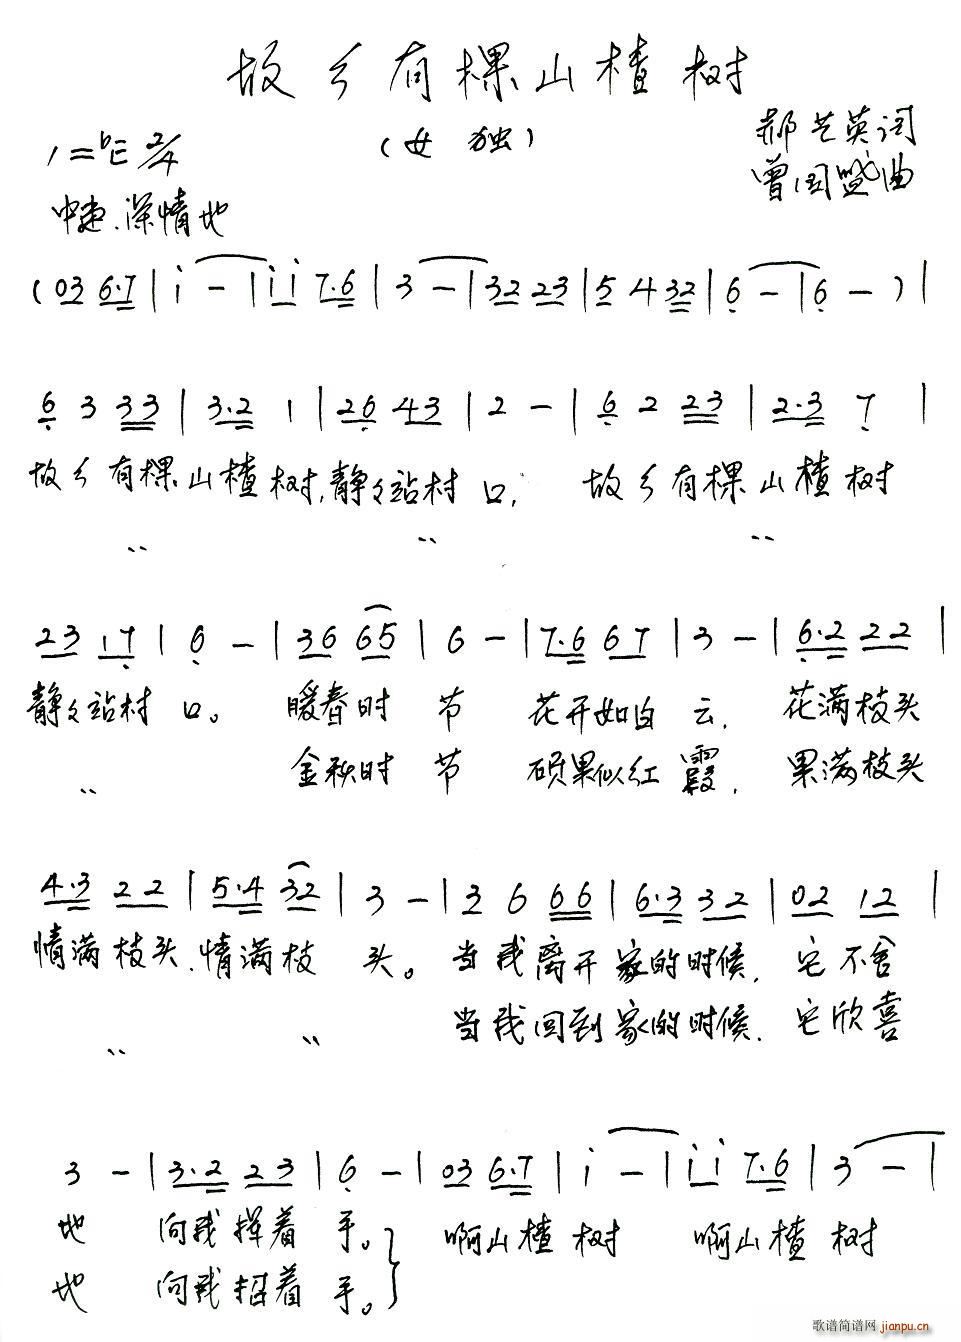 故乡有棵山楂树
(女 独)
1=bE 2/4
郝艺英词
曾国盛曲
中速.深情地
( 03 6·7 | i - | i i 7·6 | 3 - | 32 23 | 5 4 32 | 6 - | 6 - ) |
6 3 33 | 3·2 1 | 26 43 | 2 - | 6 2 23 | 2·3 7 |
故乡有棵山楂树,静々站村口, 故乡有棵山楂树
〃 〃 〃
23 17 | 6 - | 36 65 | 6 - | 7·6 67 | 3 - | 6·2 22 |
静々站村口。 暖春时 节 花开如白云, 花满枝头
〃 金秋时 节 硕果似红霞, 果满枝头
4·3 22 | 5·4 32 | 3 - | 3 6 66 | 6·3 32 | 02 12 |
情满枝头,情满枝 头。当我离开家的时候, 它不舍
〃 〃 当我回到家的时候, 它欣喜
3 - | 3·2 23 | 6 - | 03 6·7 | i - | i i 7·6 | 3 - |
地 向我挥着手。 啊山楂树 啊山楂树
地 向我招着手。
歌谱简谱网 jianpu.cn